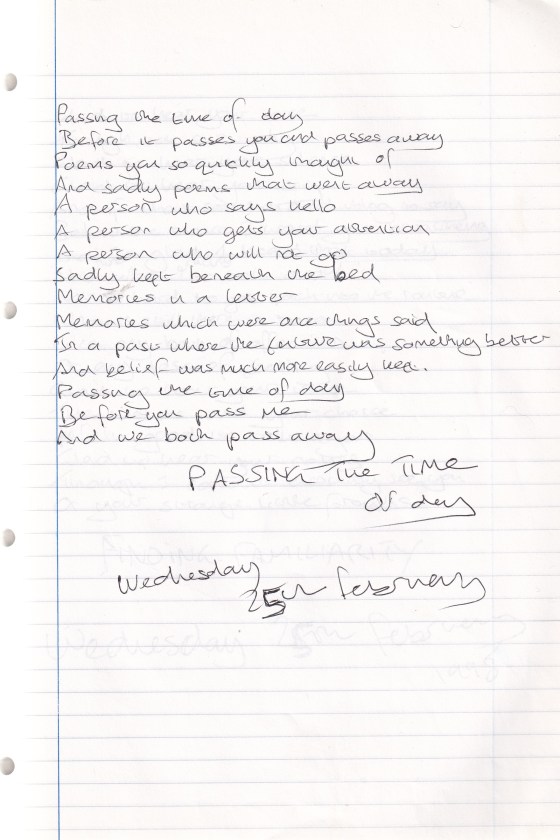 Passing the time of day
Before it passes you and passes away
Poems you so quickly thought of
And sadly poems that went away
A person who says hello
A person who gets your attention
A person who will not go
Sadly kept beneath the bed
Memories in a letter
Memories which were once things said
In a past where the future was something better
And belief was much more easily kept.
Passing the time of day
Before you pass me
And we both pass away
PASSING THE TIME
OF day
Wednesday
25th February